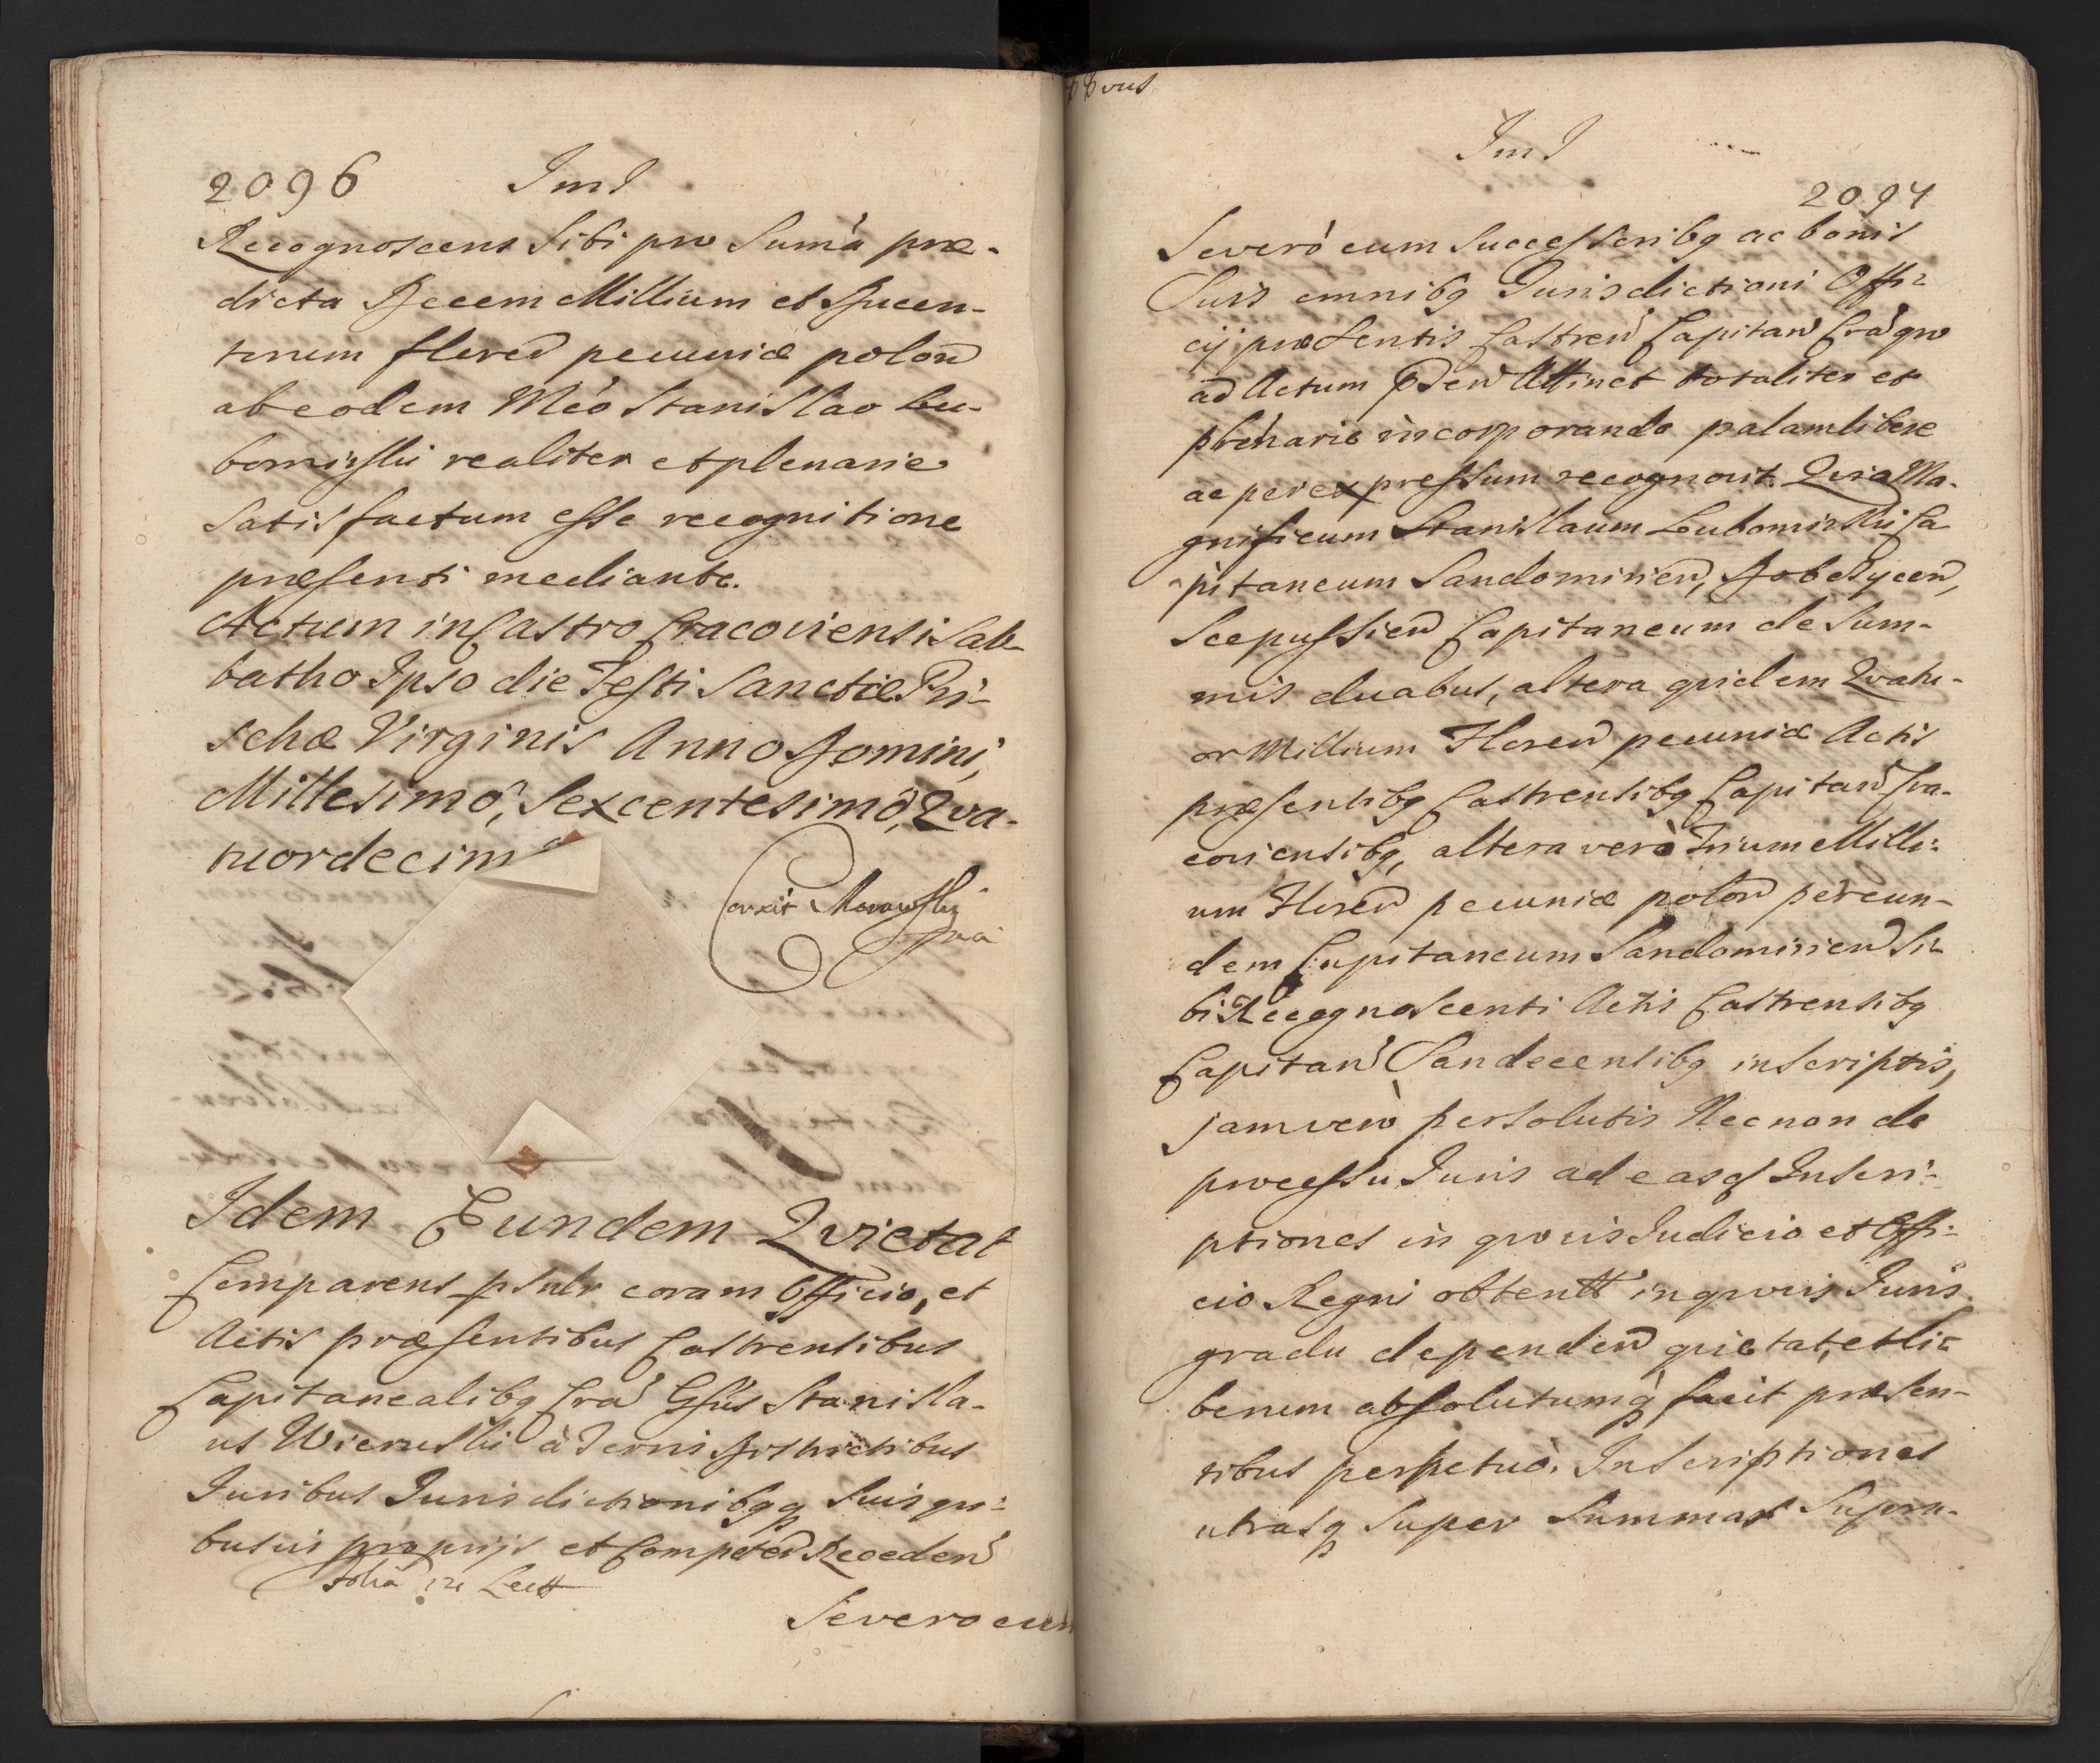 2096 ImI
Recognoscens Sibi pro Suma præ-
dicta Decem Millium et Ducen-
torum floren pecuniæ polon
ab eodem Mco Stanislao Lu-
bomirski realiter et plenarie
Satisfactum esse recognitione
præsenti mediante.
Actum in Castro Cracoviensi Sab-
batho Ipso die Festi Sanctæ Pri-
schæ Virginis Anno Domini,
Millesimo, Sexcentesimo, Qva-
tuordecimo
Correxit
mp
Idem Eundem Qvietat
Comparens psnlr coram Officio, et
Actis præsentibus Castrensibus
Capitanealibq Cra Gsus Stanisla-
us Wieruski à Terris Districtibus
Juribus Jurisdictionibqq Suis qvi-
busvis propriis et Competen Receden
Severo cum
ImI
2097
Severo cum Successoribq ac bonis
Suis omnibq Jurisdictioni Offi-
cij præsentis Castren Capitan Cra qvo
ad Actum pden Attinet totaliter et
plenarie incorporando palam libere
ac per expressum recognovit Qvia Ma-
gnificum Stanislaum Lubomirski Ca-
pitaneum Sandomirien, Dobczycen,
Scepussien Capitaneum de Sum-
mis duabus, altera qvidem Qvatu-
or Millium Floren pecuniæ Actis
præsentibq Castrensibq Capitan Cra-
coviensibq, altera verò Trium Milli-
um Floren pecuniæ polon per eun-
dem Capitaneum Sandomirien Si-
bi Recognoscenti Actis Castrensibq
Capitan Sandecensibq inscriptis,
jam verò persolutis Nec non de
processu Juris ad easq Inscri-
ptiones in qvovis Judicio et Offi-
cio Regni obtentt in qvovis Juris
gradu dependen qvietat, et li-
berum absolutumq facit præsen-
tibus perpetuò. Inscriptiones
utrasq Super Summas Supra-